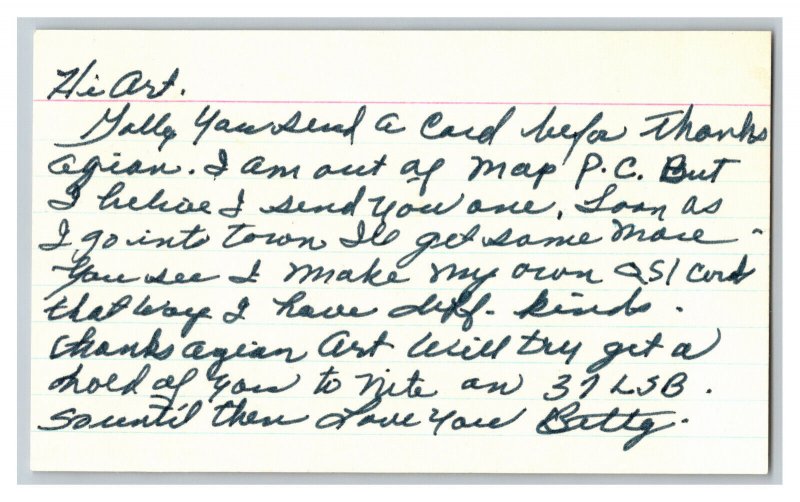 Hi Art.
Golly You send a Card befor Thanks
agian. I am out of Map P.C. But
I belive I send you one. Soon as
I go into town Ill get some More -
You see I Make My own QSl Cards
that way I have diff- kinds.
thanks agian Art Will try get a
hold of You to Nite on 37 LSB.
So until then Love You Betty.